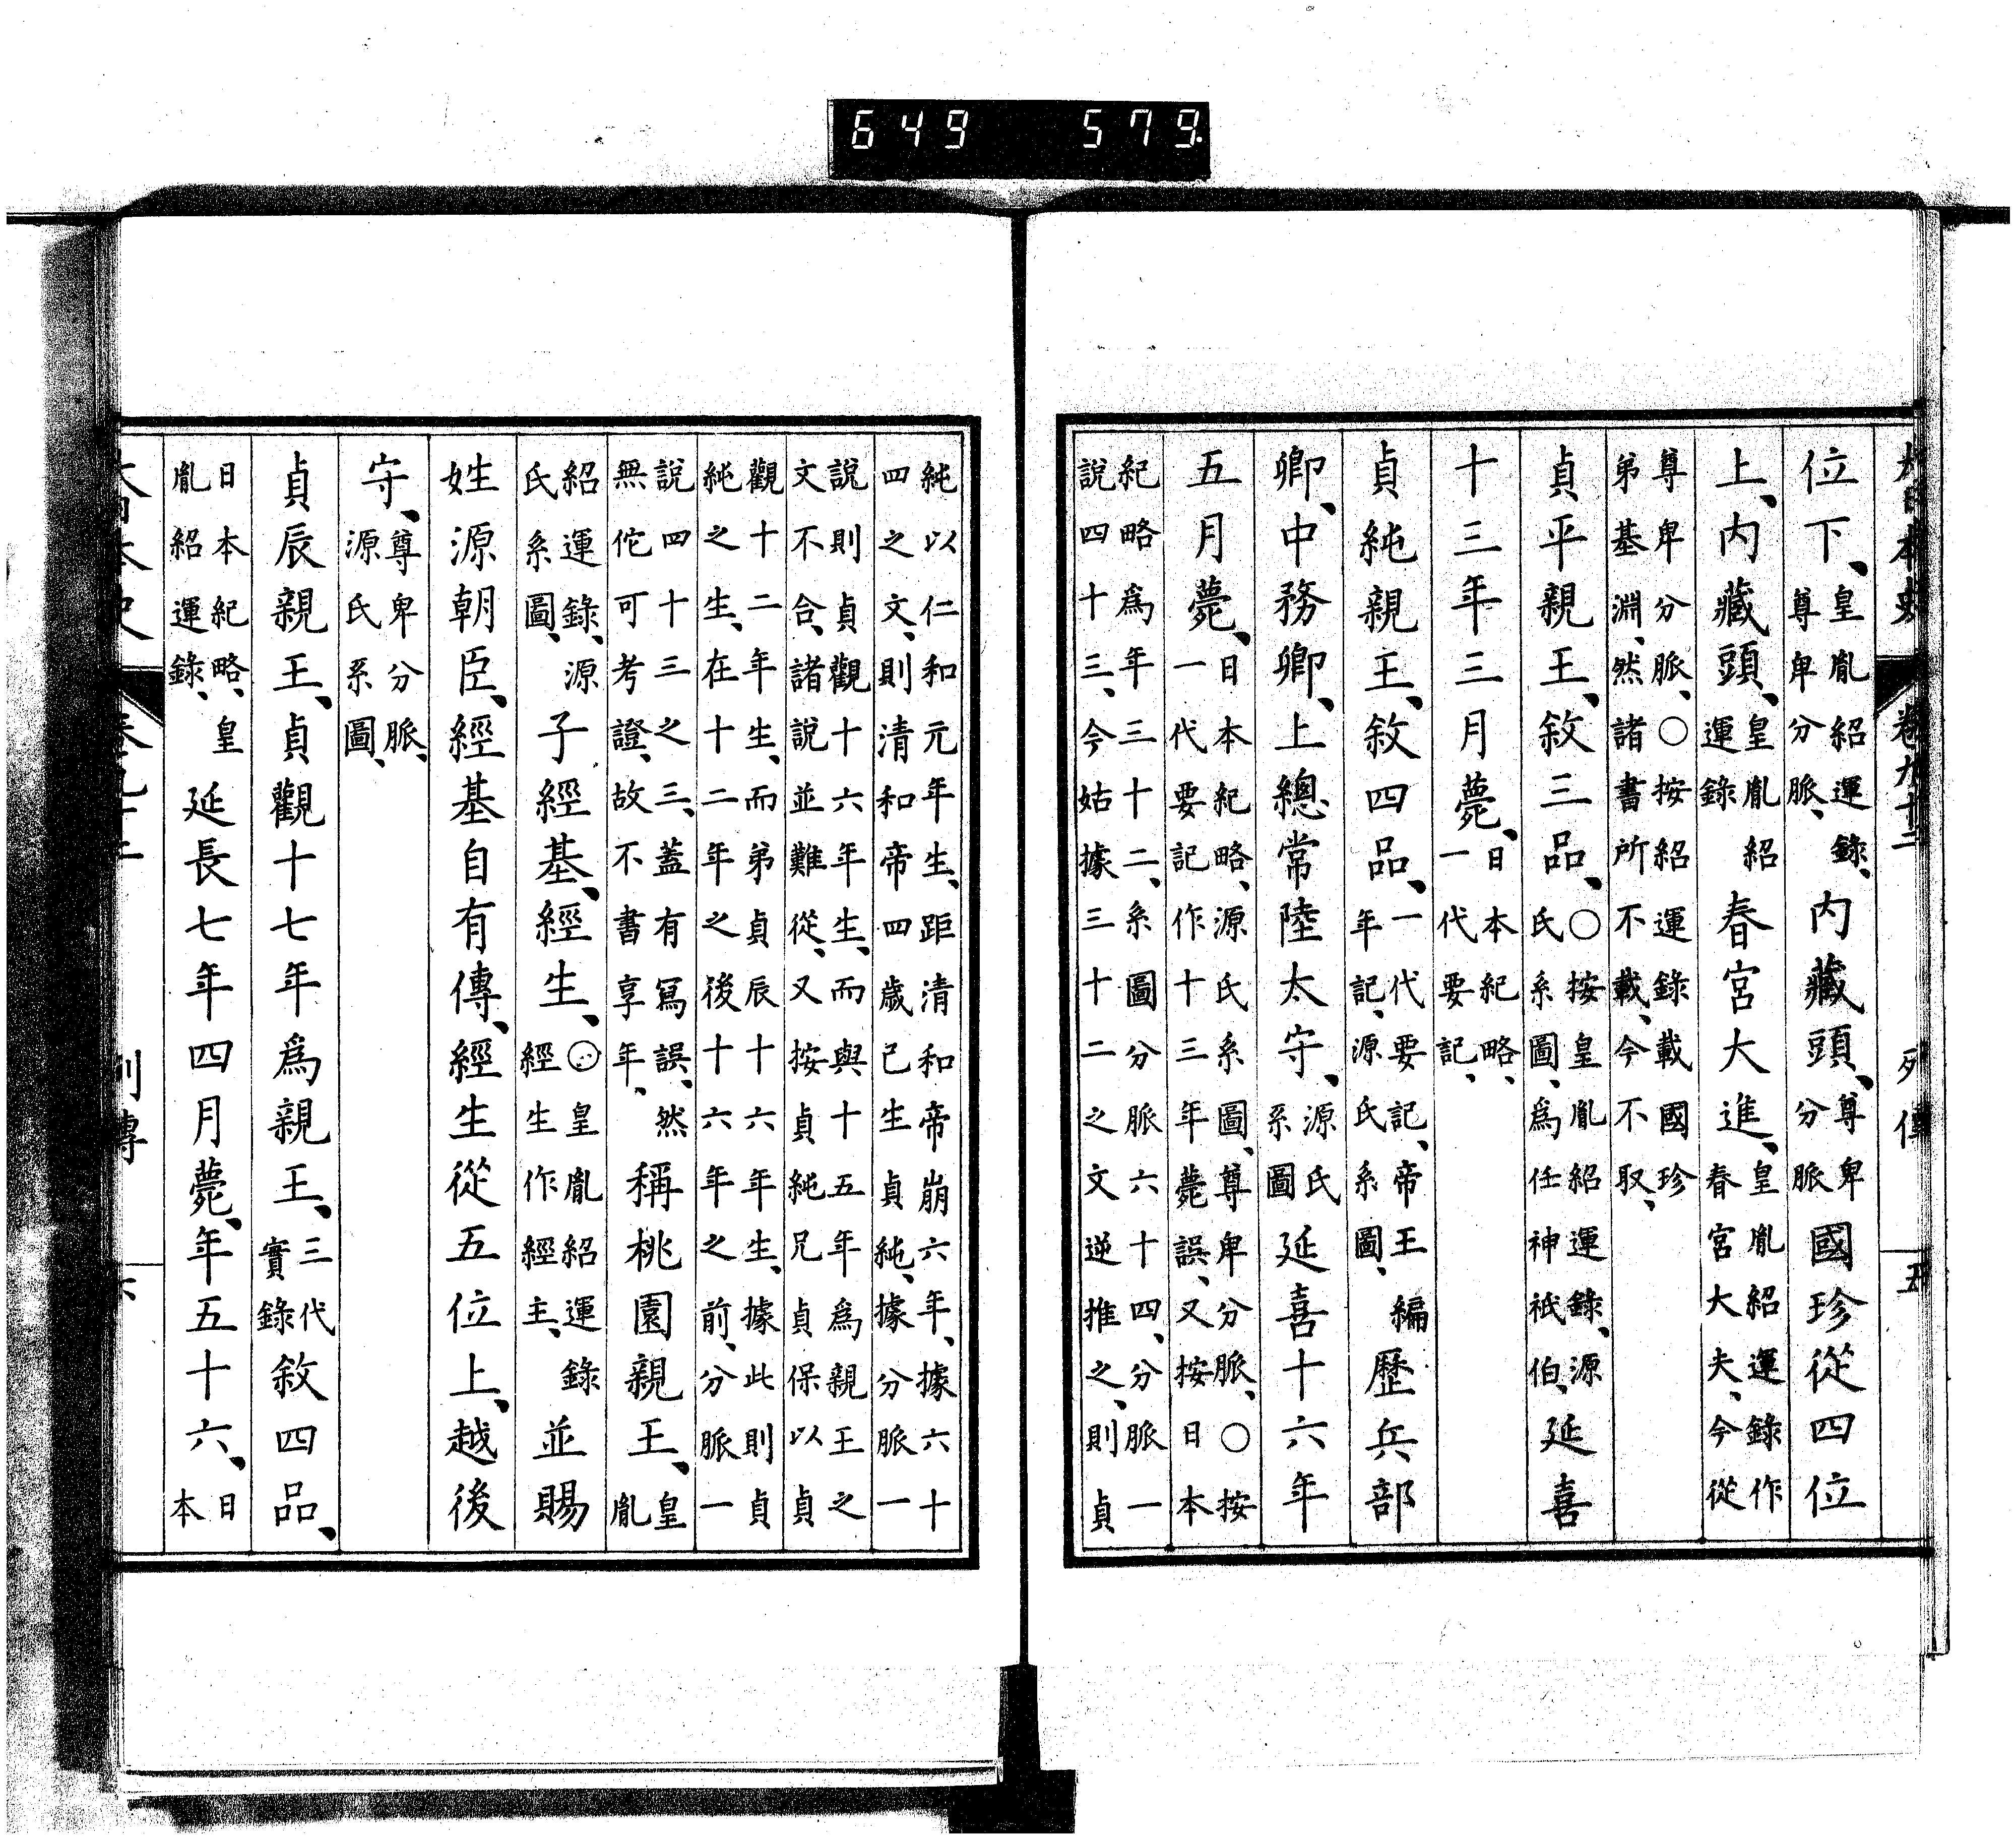 大日本史 卷九十二 列傳 五
位下、皇胤紹運錄、尊卑分脈、內藏頭、尊卑分脈國珍從四位
上、內藏頭、皇胤紹運錄春宮大進、皇胤紹運錄作春宮大夫、今從
尊卑分脈、○按紹運錄載國珍弟基淵、然諸書所不載、今不取、
貞平親王、敘三品、○按皇胤紹運錄、源氏系圖、爲任神祇伯、延喜
十三年三月薨、日本紀略、一代要記、
貞純親王、敘四品、一代要記、帝王編年記、源氏系圖、歷兵部
卿、中務卿、上總常陸太守、源氏系圖延喜十六年
五月薨、日本紀略、源氏系圖、尊卑分脈、○按一代要記作十三年薨誤、又按日本
紀略爲年三十二、系圖分脈六十四、分脈一說四十三、今姑據三十二之文逆推之、則貞
純以仁和元年生、距清和帝崩六年、據六十四之文、則清和帝四歲已生貞純、據分脈一
說則貞觀十六年生、而與十五年爲親王之文不合、諸說並難從、又按貞純兄貞保以貞
觀十二年生、而弟貞辰十六年生、據此則貞純之生、在十二年之後十六年之前、分脈一
說四十三之三、蓋有寫誤、然無佗可考證、故不書享年、稱桃園親王、皇胤
紹運錄、源氏系圖、子經基、經生、○皇胤紹運錄經生作經主、並賜
姓源朝臣、經基自有傳、經生從五位上、越後
守、尊卑分脈、源氏系圖、
貞辰親王、貞觀十七年爲親王、三代實錄敘四品、
日本紀略、皇胤紹運錄、延長七年四月薨、年五十六、日本
大日本史 卷九十二 列傳 六
649 579